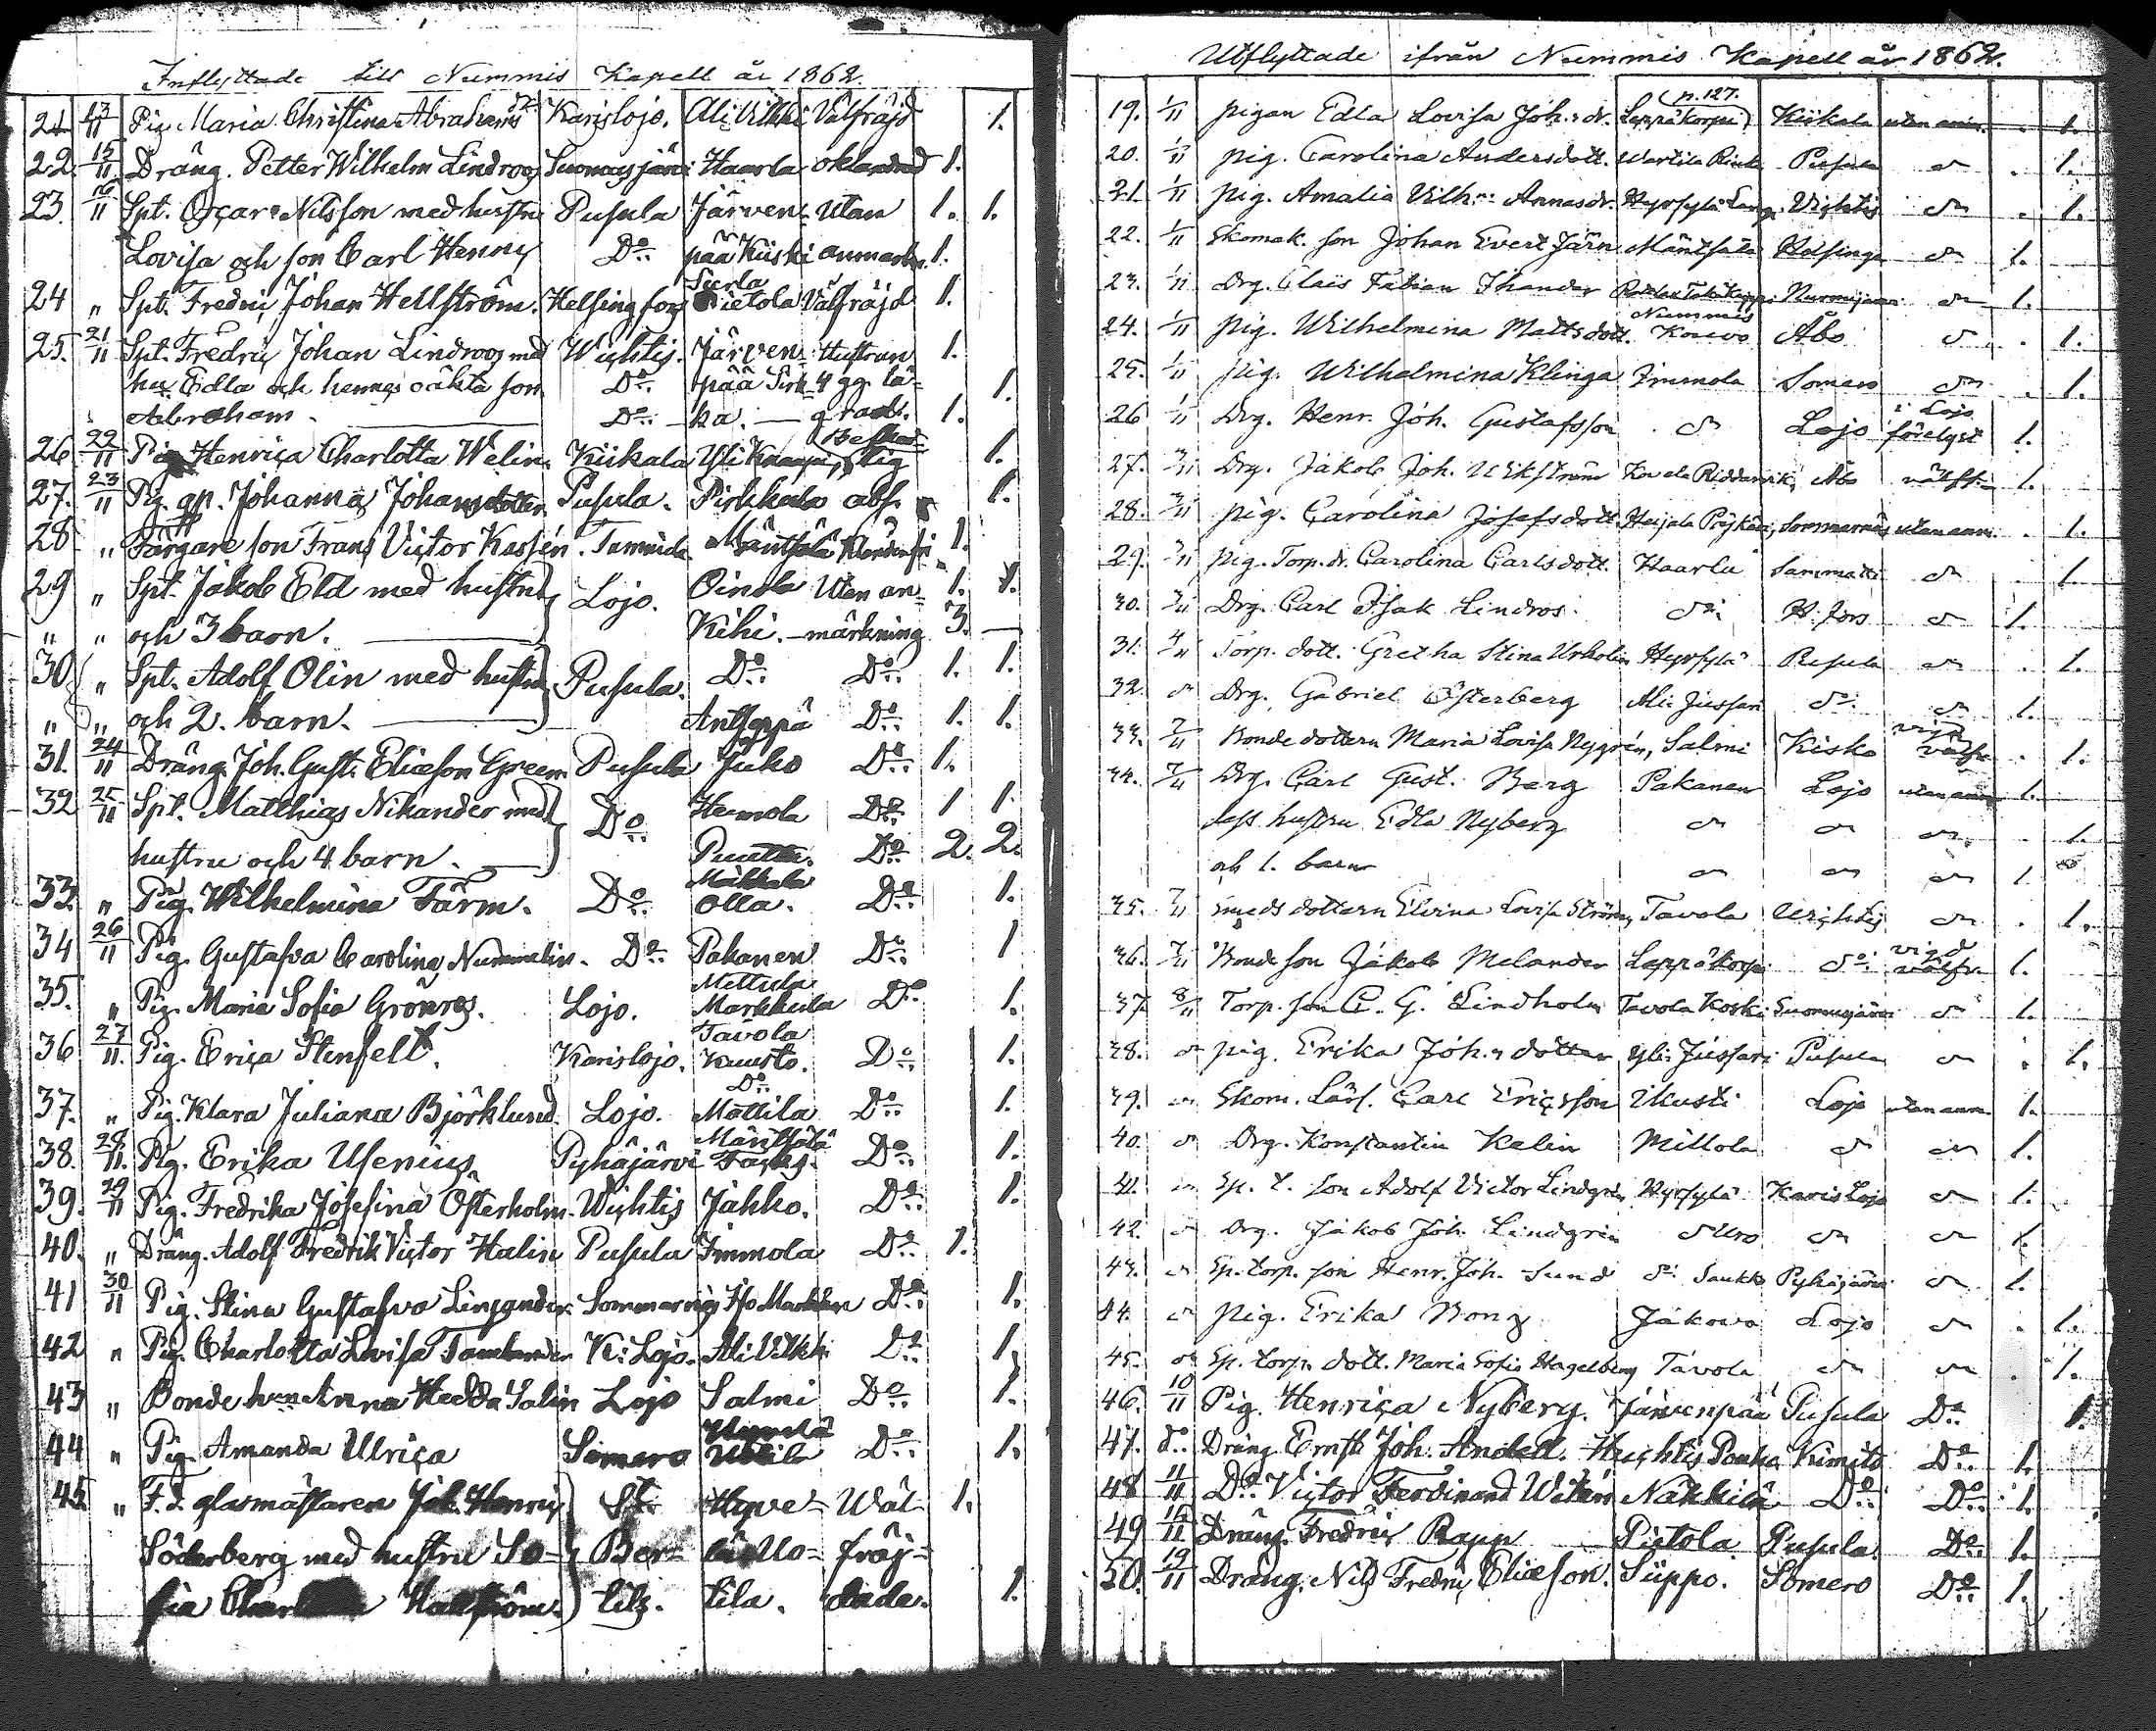 Inflyttade till Nummis Kapell år 1862.
21 13/11 Pig. Maria Christina Abrahams dr. Karislojo. Ali Vilkki Välfräjd 1.
22. 15/11 Dräng. Petter Wilhelm Lindroos Suomusjärvi Haarla oklandrad 1.
23. 16/11 Spt. Oscar Nilsson med hustru Pusula Järven- Utan 1. 1.
Lovisa och son Carl Henric Do pää Kiiski anmärkn. 1.
Surla
24 " Spt. Fredric Johan Hellström. Helsingfors Pietola Välfräjd 1.
25. 21/11 Spt. Fredric Johan Lindroos med Wichtis. Järven- Hustrun 1.
hu. Edla och hennes oäkta son Do pää Sirk- 4 gg. lä- 1.
Abraham. Do ka. grad. 1.
26 22/11 Pig. Henrica Charlotta Welin. Kiikala Yli Knaapi, 1.
27. 23/11 Pig. Johanna Johansdotter. Pusula. Pirkkala abs. 1.
28 " Färgare son Frans Victor Kassén. Tammela Mäntsälä 1.
29 " Spt. Jakob Eld med hustru Lojo. Oinola Utan an- 1. 1.
" " och 3 barn. Kihi. märkning 3.
30 " Spt. Adolf Olin med hustru Pusula. Do Do 1. 1.
" " och 2. barn. Antseppä Do 1. 1.
31. 24/11 Dräng Joh. Gust. Eliæson Green Pusula Juko Do 1.
32 25/11 Spt. Matthias Nikander med Do Hemola Do 1 1.
hustru och 4 barn. Puutta. Do 2. 2.
Mäkkälä
33. " Pig. Wilhelmina Färm. Do Olla. Do 1.
34 26/11 Pig. Gustafva Carolina Nummelin. Do Pakanen Do 1
Mettula
35. " Pig. Maria Sofia Grönroos. Lojo. Markkula Do 1.
Tavola
36 27/11 Pig. Erica Stenfelt. Karislojo. Kuusto. Do 1.
Do
37. " Pig. Klara Juliana Björklund. Lojo. Mattila Do 1.
Mäntsälä
38. 28/11 Pig. Erika Usenius, Pyhäjärvi Do 1.
39. 29/11 Pig. Fredrika Josefina Österholm. Wichtis Jakko. Do 1.
40. " Dräng. Adolf Fredrik Victor Halin Pusula Immola Do 1.
41 30/11 Pig. Stina Gustafva Linjander. Sommarnäs Do 1.
42 " Pig. Charlotta Lovisa Tamlander K: Lojo. Ali Vilkki Do 1.
43 " Bonde h:n Anna Hedda Salin Lojo Salmi Do 1.
44 " Pig. Amanda Ulrica Somero Do 1.
45 " F. d. glasmästaren Joh. Henric St. Hyve- Wäl- 1.
Söderberg med hustru So- Ber- lä Uo- fräj-
fia Hallström. tils. tila. dade. 1.
Utflyttade ifrån Nummis Kapell år 1862.
p. 127.
19. 1/11 pigan Edla Lovisa Joh:s dr. Leppäkorpi Kiikala utan anm. . 1.
20. 1/11 pig. Carolina Andersdott. Wartila Pusula do . 1.
21. 1/11 pig. Amalia Vilh:na Annasdr. Hyrsylä Wichtis do . 1.
22. 1/11 Skomak. son Johan Evert Järn Mäntsälä Helsinge do 1.
23. 1/11 Drg. Claës Fabian Ihander Nurmijärvi do 1.
Nummis
24. 1/11 pig. Wilhelmina Mattsdott. Kouvo Åbo do . 1.
25. 1/11 pig. Wilhelmina Klinga Immola Somero do . 1.
i Lojo
26 1/11 Drg. Henr. Joh. Gustafsson do Lojo förelyst 1.
27. 3/11 Drg. Jakob Joh. W Ekström Åbo välfr. 1.
28. 3/11 pig. Carolina Josefsdott. Heijala Pöykäri, Sommarnäs utan anm. . 1.
29. 3/11 pig. Torp. dr. Carolina Carlsdott. Haarla Sammatti do . 1.
30. 3/11 Drg. Carl Isak Lindros. do H. fors do 1.
31. 4/11 Torp. dott. Gretha Stina Urholin Hyrsylä Pusula do . 1.
32. do Drg. Gabriel Österberg Ali Jussari do do 1.
33. 7/11 Bondedottern Maria Lovisa Nygrén, Salmi Kisko välfr. . 1.
34. 7/11 Drg. Carl Gust. Berg Pakanen Lojo utan anm 1.
dess hustru Edla Nyberg do do do . 1.
och 1. barn do do do 1.
35. 7/11 Smeds dottern Elvina Lovisa Ström, Tavola Wichtis do . 1.
36. 7/11 Bondeson Jakob Melander Leppäkorpi do välfr. 1.
37. 8/11 Torp. son C. G. Lindholm Tavola Koski Suomusjärvi do 1.
38. do pig. Erika Joh:s dotter Yli Jussari Pusula do . 1.
39. do Skom. Lärl. Carl Ericsson Ikusti Lojo utan anm. 1.
40. do Drg. Konstantin Kalin Millola do do 1.
41. do Sp. t. son Adolf Victor Lindgrén, Hyrsylä Karis Lojo do 1.
42. do Drg. Jakob Joh. Lindgrén do Uro do do 1.
43. do Sp. torp. son Henr. Joh. Sund do Saukko Pyhäjärvi do 1.
44. do pig. Erika Bong Jakova Lojo do . 1.
45. do Sp. torp. dott. Maria Sofia Hagelberg Tavola do do . 1.
46. 10/11 Pig. Henrica Nyberg. Järvenpää Pusula Do 1.
47. do Dräng. Ernst Joh. Andell. Huchtis Pouka Kimito Do 1.
48 11/11 Do Victor Ferdinand Witén Näkkilä Do Do 1.
49 Dräng. Fredric Rapp Pietola Pusula Do 1.
50. 19/11 Dräng. Nils Fredric Eliæson. Siippo. Somero Do 1.